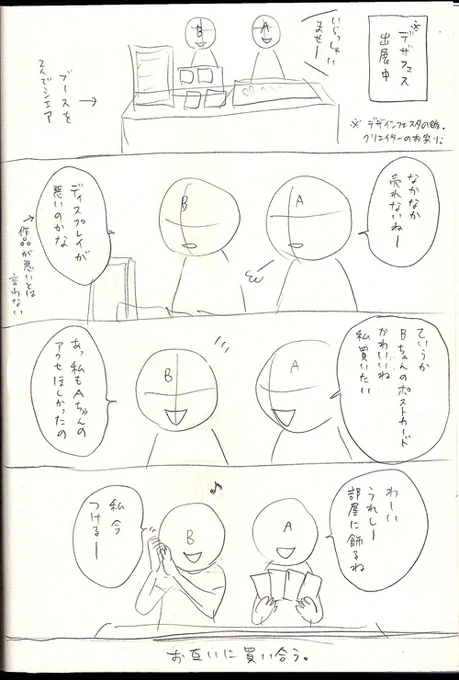 ※
デザフェス
出展中
いらっしゃい
ませー
B
A
ブースを
2人でシェア
※ デザインフェスタの略。
クリエイターのお祭り。
なかなか
売れないねー
A
B
ディスプレイが
悪いのかな
作品が悪いとは
言わない
ていうか
Bちゃんのポストカード
かわいいね
私買いたい
A
B
あっ私もAちゃんの
アクセほしかったの
わーい
うれしー
部屋に飾るね
A
B
私今
つけるー
お互いに買い合う。